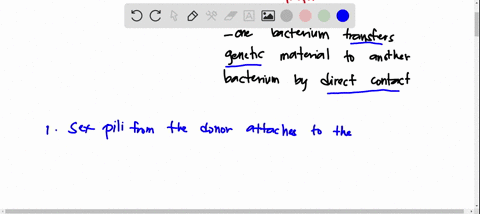 -one bacterium transfers
genetic material to another
bacterium by direct contact
1. Sex pili from the donor attaches to the